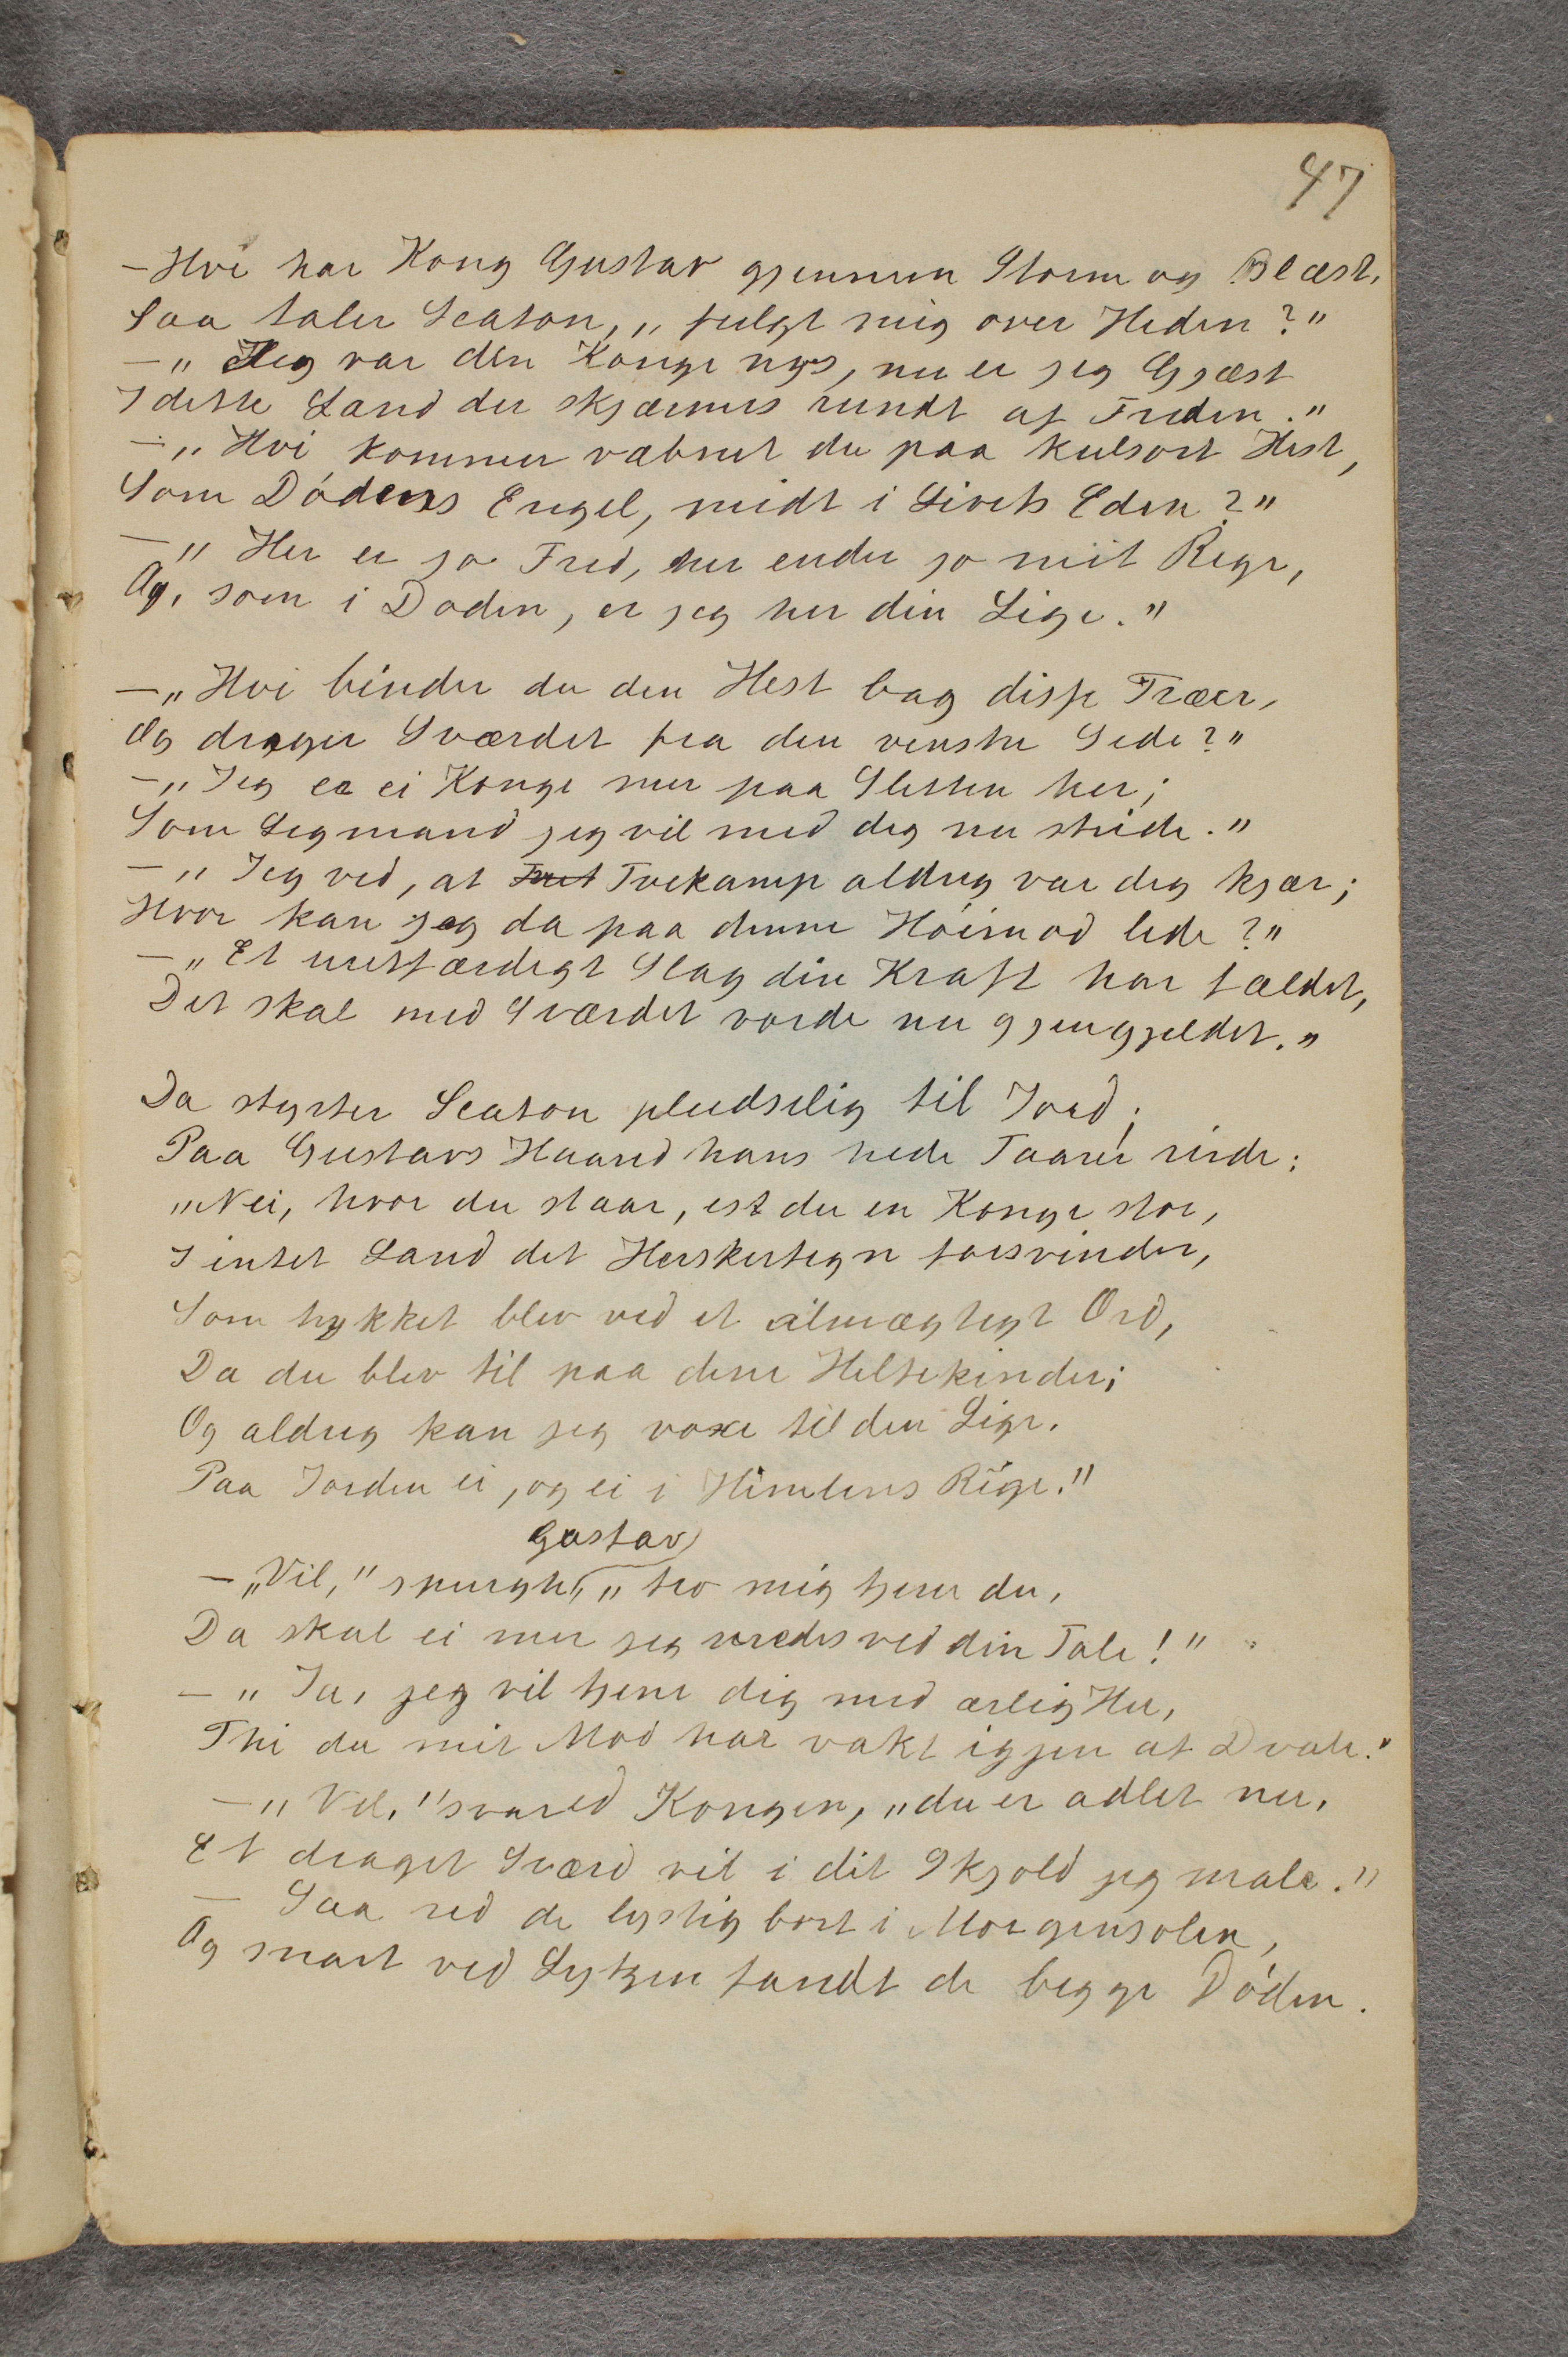 47
— Hvi har Kong Gustav gjennem Storm og Blæst,
Saa taler Seaton, „fulgt mig over Heden?"
— „Jeg var din Konge nys, nu er jeg Gjæst
I dette Land der skjærmes rundt af Freden."
— „Hvi kommer væbnet du paa kulsort Hest,
Som Dødens Engel, midt i Livets Eden?"
— „Her er jo Fred, her ender jo mit Rige,
Og, som i Doden, er jeg her din Lige."
— „Hvi binder du din Hest bag disse Træer,
Og drager Sværdet fra din venstre Side?"
— „Jeg er ei Konge mer paa Sletten her;
Som Legmand jeg vil med dig nu stride."
— „Jeg ved, at Tvekamp aldrig var dig kjær;
Hvor kan jeg da paa denne Høimod lide?"
— „Et uretfærdigt Slag din Kraft har fældet,
Det skal med Sværdet vorde nu gjengjeldet."
Da styrter Seaton pludselig til Jord;
Paa Gustavs Haand hans hede Taarer rinde:
„Nei, hvor du staar, est du en Konge stor,
I intet Land det Herskertegn forsvinder,
Som trykket blev ved et almægtigt Ord,
Da du blev til paa dine Heltekinder;
Og aldrig kan jeg voxe til din Lige.
Paa Jorden ei, og ei i Himlens Rige."
Gustav
— „Vil," spurgte, „tro mig tjene du,
Da skal ei mer jeg vredes ved din Tale!"
— „Ja, jeg vil tjene dig med ærlig Hu,
Thi du mit Mod har vakt igjen af Dvale."
— „Vel," svared Kongen, „du er adlet nu,
Et draget Sværd vil i dit Skjold jeg male."
— Saa red de lystig bort i Morgensolen,
Og snart ved Lytzen fandt de begge Døden.